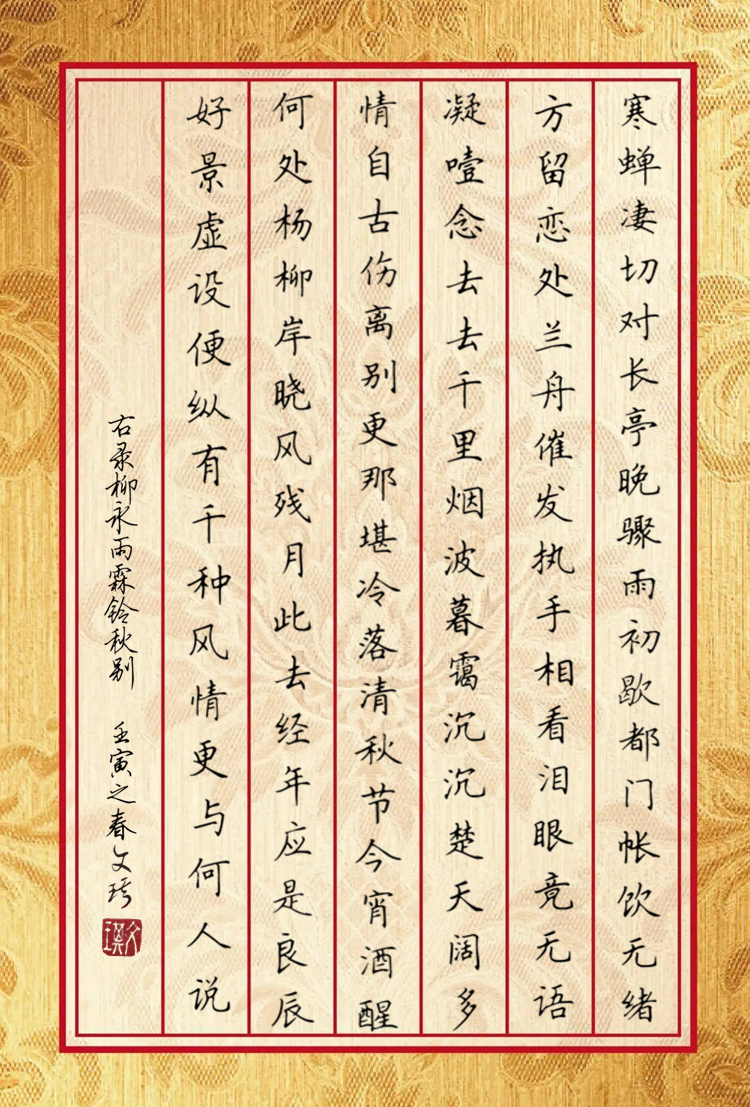 寒蝉凄切对长亭晚骤雨初歇都门帐饮无绪
方留恋处兰舟催发执手相看泪眼竟无语
凝噎念去去千里烟波暮霭沉沉楚天阔多
情自古伤离别更那堪冷落清秋节今宵酒醒
何处杨柳岸晓风残月此去经年应是良辰
好景虚设便纵有千种风情更与何人说
右录柳永雨霖铃秋别 壬寅之春文